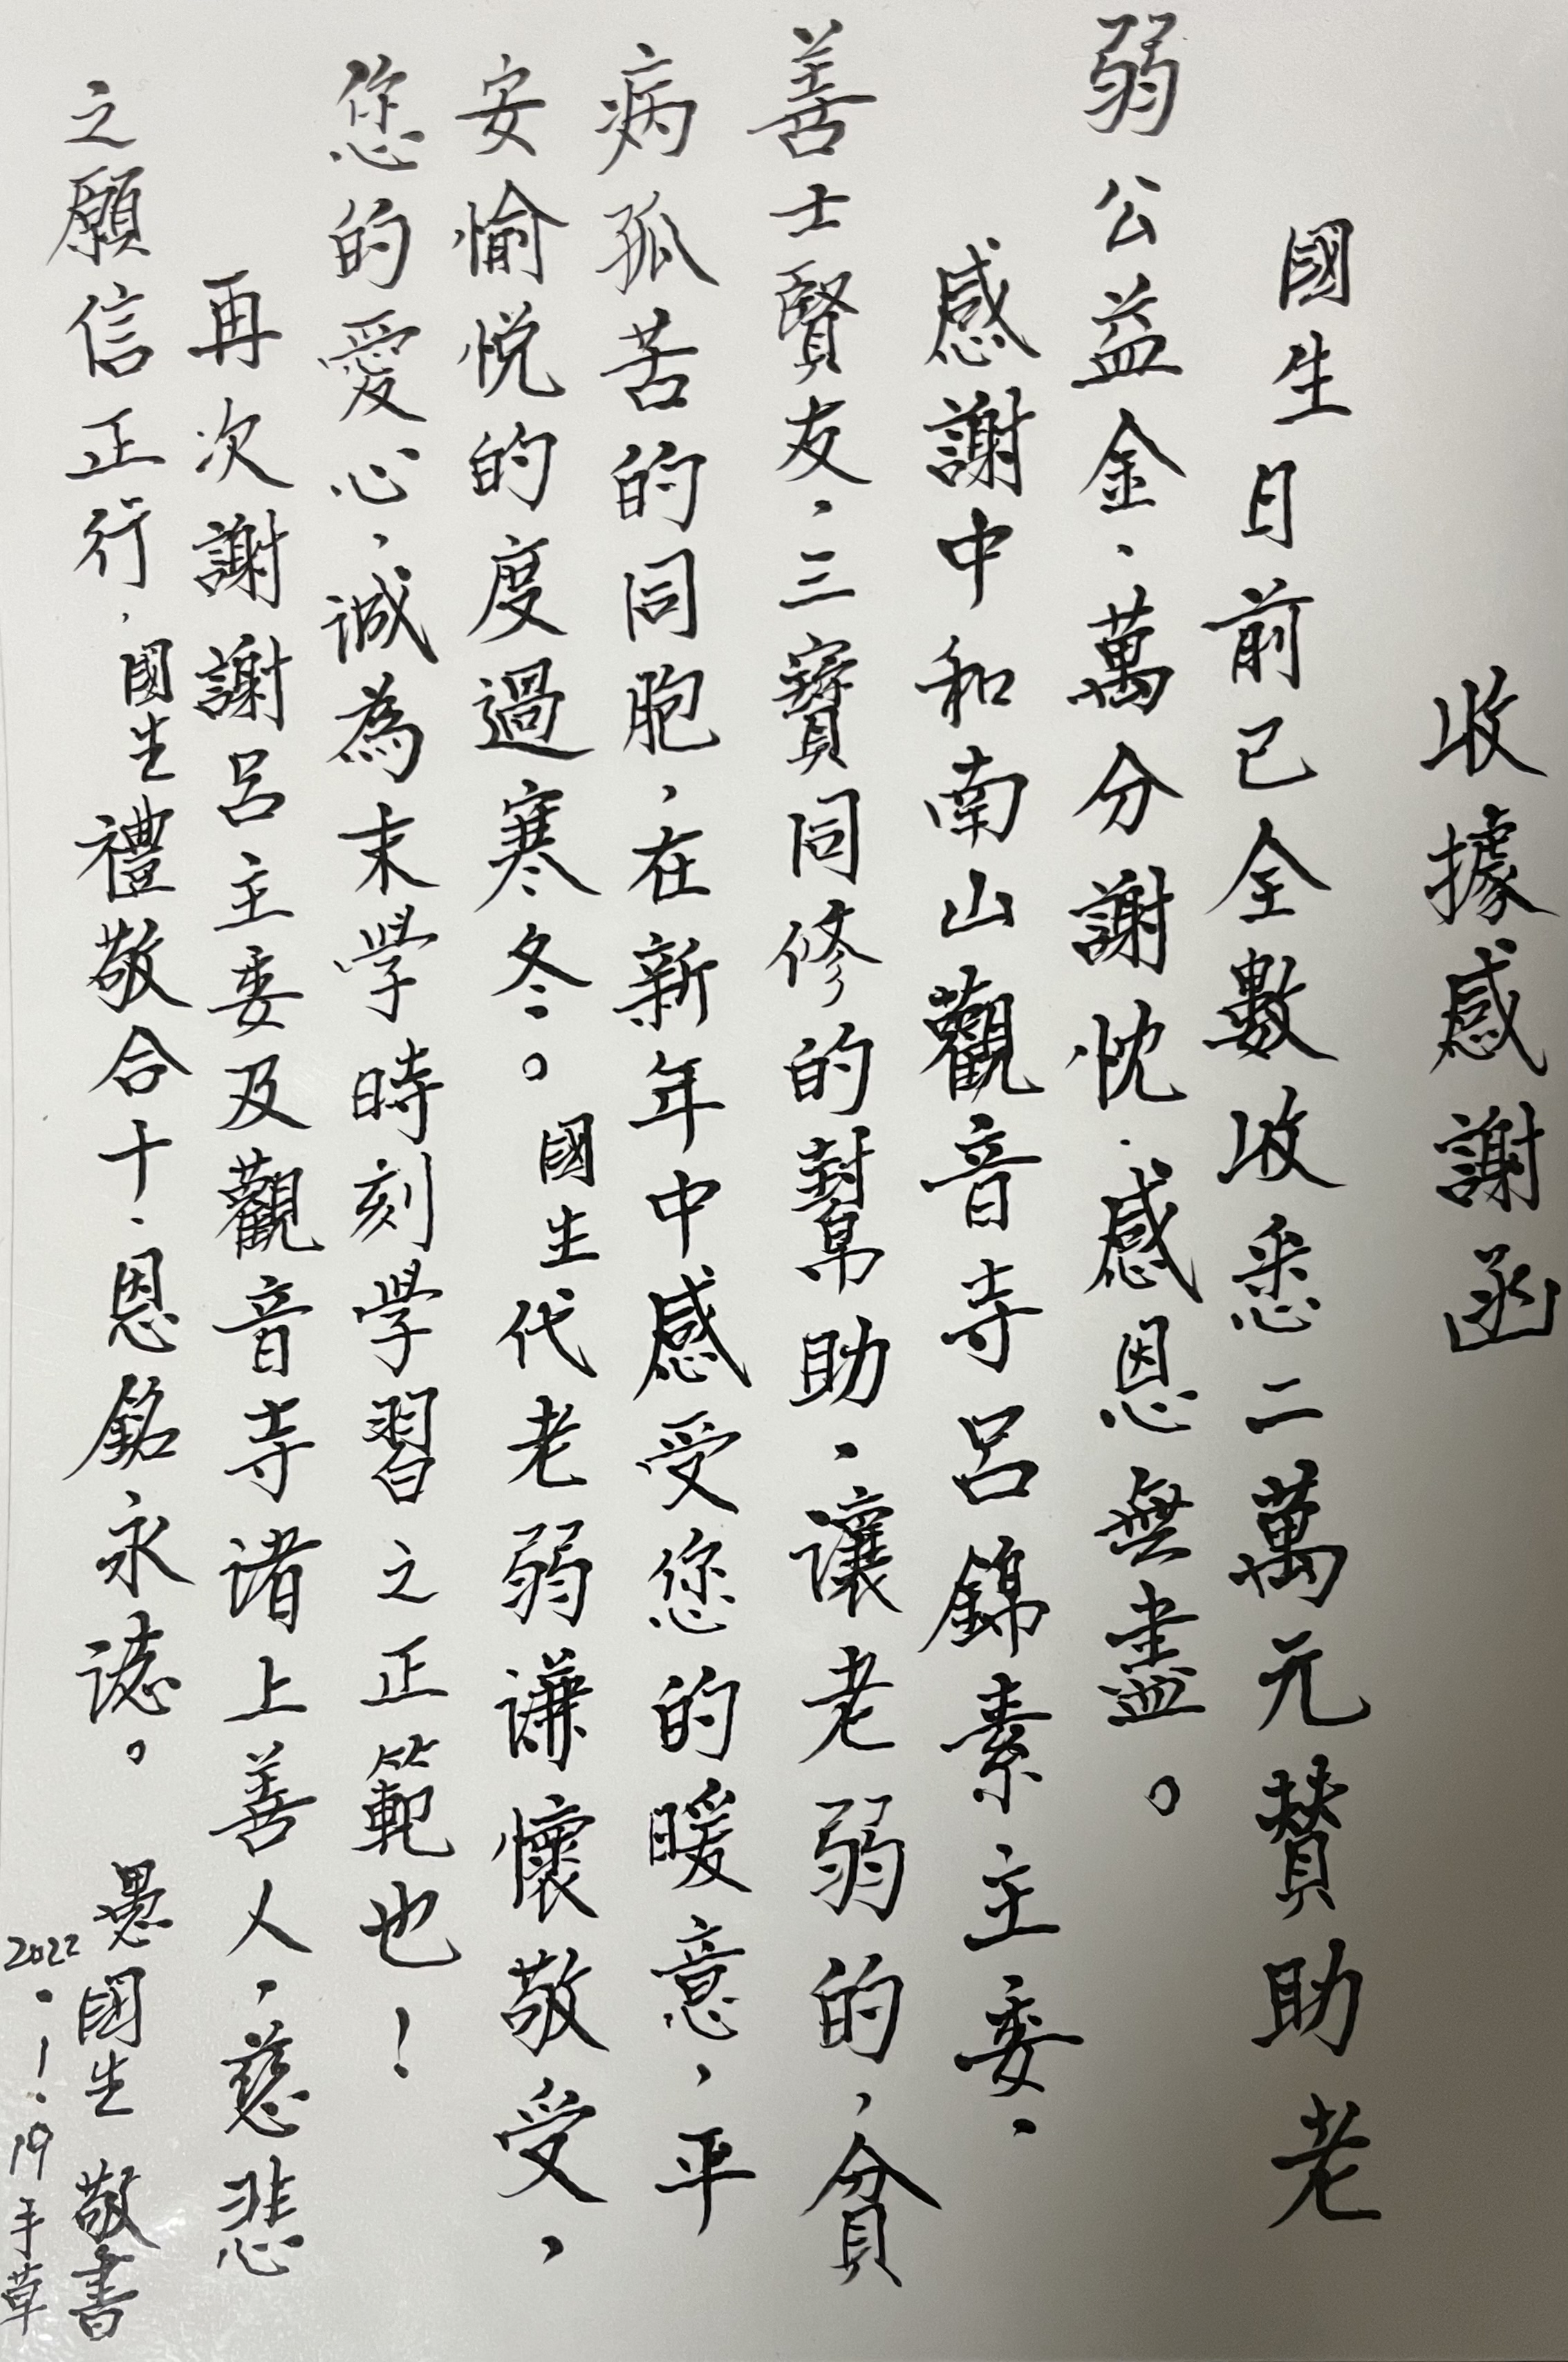 收據感謝函
國生日前已全數收悉二萬元贊助老
弱公益金、萬分謝忱、感恩無盡。
感謝中和南山觀音寺呂錦素主委、
善士賢友、三寶同修的幫助、讓老弱的,貧
病孤苦的同胞,在新年中感受您的暖意,平
安愉悅的度過寒冬。國生代老弱謙懷敬受,
您的愛心,誠為末學時刻學習之正範也!
再次謝謝呂主委及觀音寺諸上善人,慈悲
之願信正行,國生禮敬合十、恩銘永誌。 愚國生 敬書
2022.1.19手草